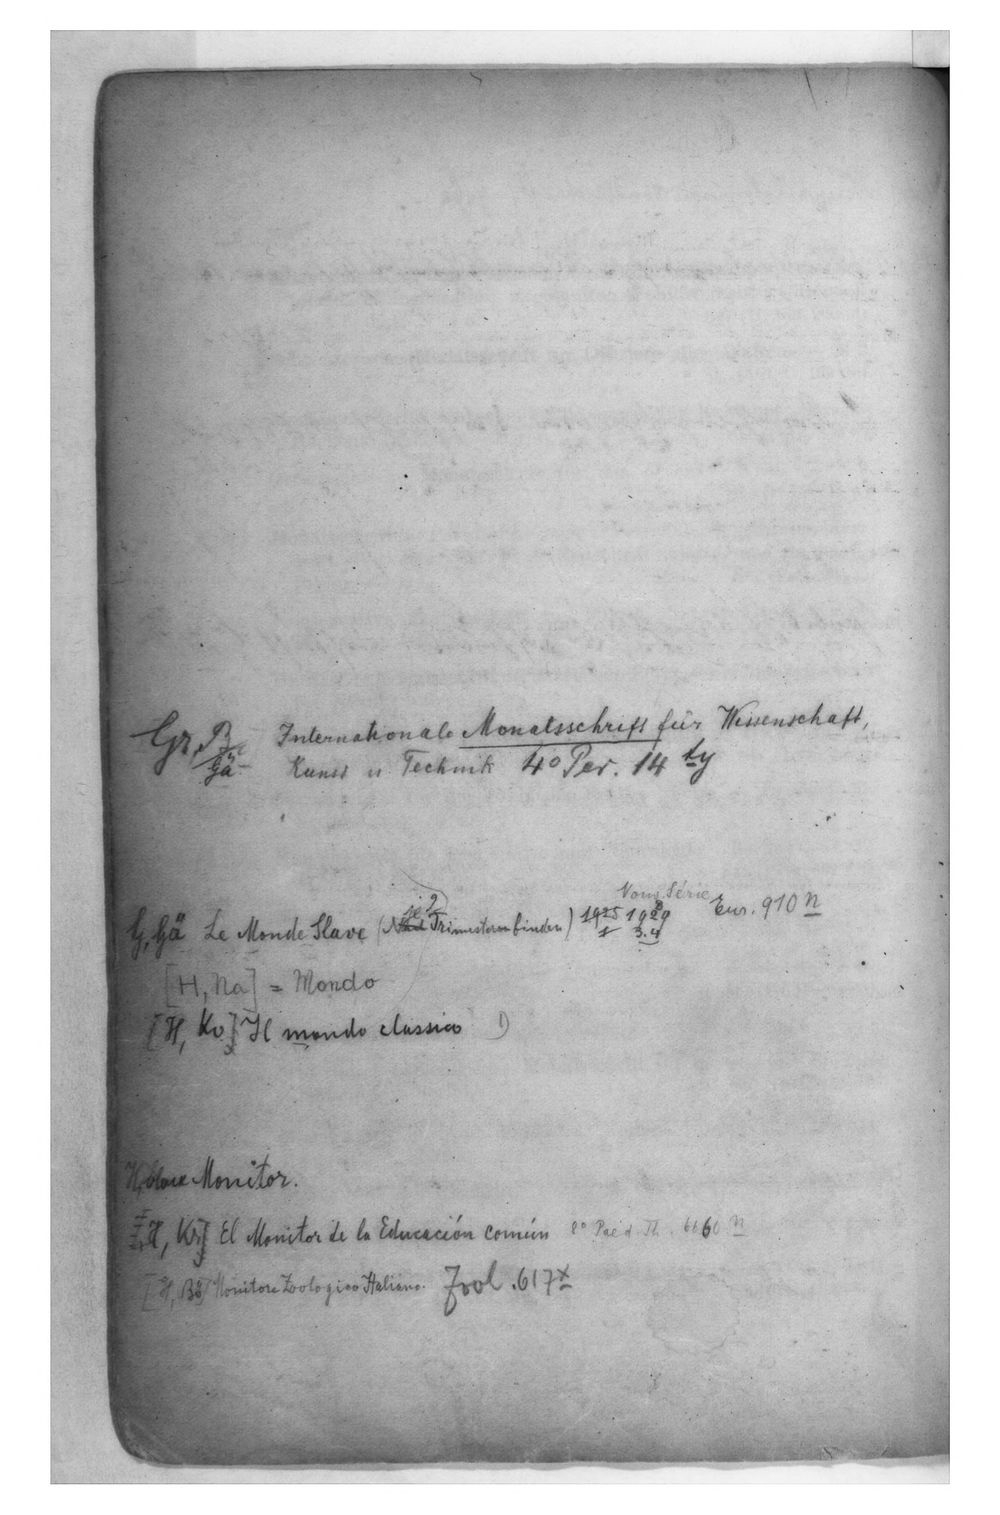 Gr, B Internationale Monatsschrift für Wissenschaft,
Gä Kunst u. Technik 4° Per. 14 ty
Nouv. Série
G, Gä Le Monde Slave (je 2 Trimester binden) 1925 1 1929 3.4 Eur. 910 n
[H, Na] = Mondo
[H, Ko] Il mondo classico 1)
Monitor.
H, Kr] El Monitor de la Educación común 8° Paed. Th. 6660 n
[H, Bö] Monitore Zoologico Italiano. Zool. 617 x